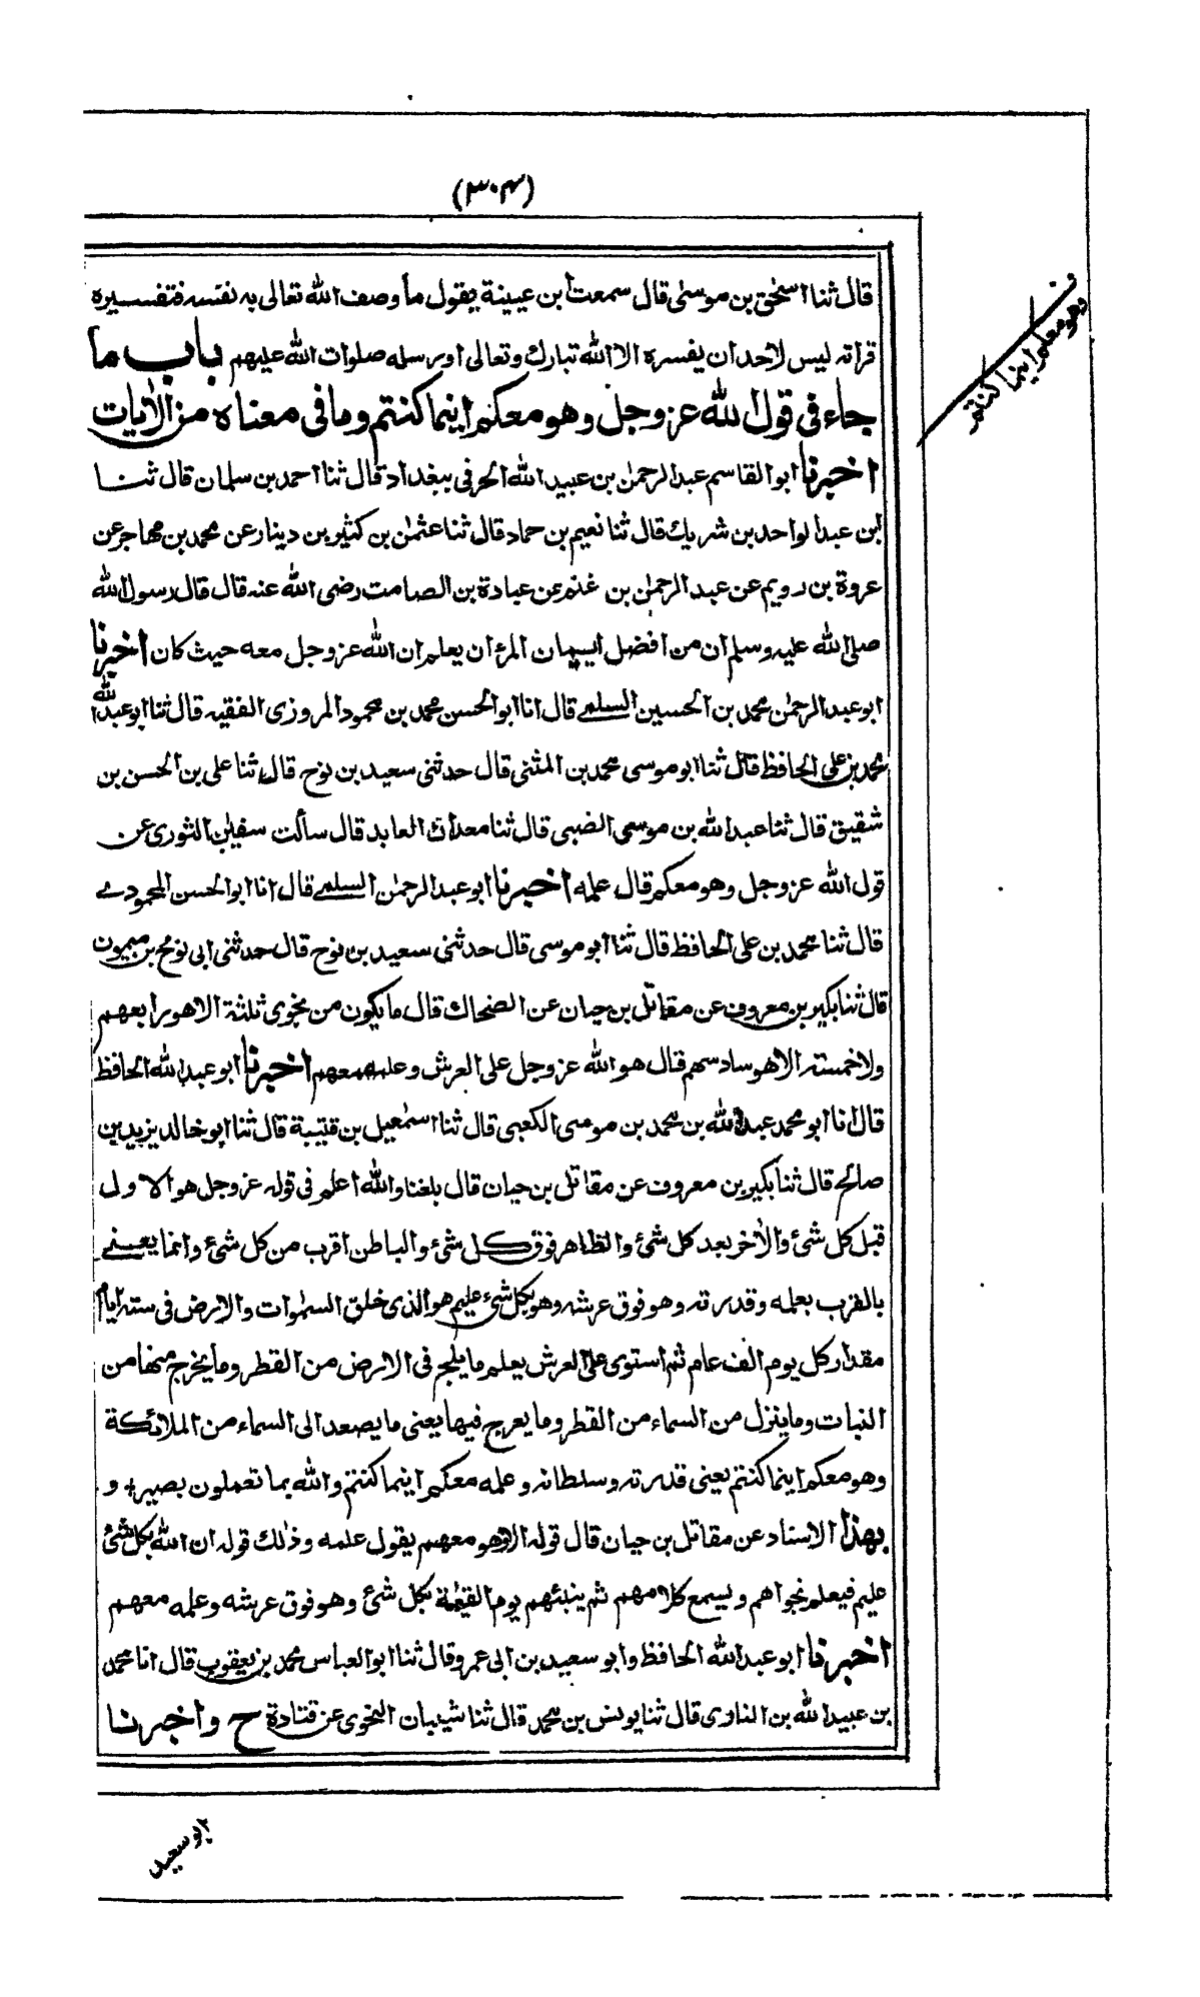 (٣٠٤)
قال ثنا اسحٰق بن موسىٰ قال سمعت ابن عيينة يقول ما وصف الله تعالى به نفسه فتفسيره
قراته ليس لاحد ان يفسره الا الله تبارك وتعالى او رسله صلوات الله عليهم باب ما
جاء فى قول الله عز وجل وهو معكم اينما كنتم وما فى معناه من الاٰيات
اخبرنا ابو القاسم عبد الرحمٰن بن عبيد الله الحرفى ببغداد قال ثنا احمد بن سلمان قال ثنا
ابن عبد الواحد بن شريك قال ثنا نعيم بن حماد قال ثنا عثمٰن بن كثير بن دينار عن محمد بن مهاجر عن
عروة بن رويم عن عبد الرحمٰن بن غنم عن عبادة بن الصامت رضى الله عنه قال قال رسول الله
صلى الله عليه وسلم ان من افضل ايمان المرء ان يعلم ان الله عز وجل معه حيث كان اخبرنا
ابو عبد الرحمٰن محمد بن الحسين السلمے قال انا ابو الحسن محمد بن محمود المروزى الفقيه قال ثنا ابو عبد الله
محمد بن على الحافظ قال ثنا ابو موسى محمد بن المثنى قال حدثنى سعيد بن نوح قال ثنا على بن الحسن بن
شقيق قال ثنا عبد الله بن موسى الضبى قال ثنا معدان العابد قال سألت سفيٰن الثورى عن
قول الله عز وجل وهو معكم قال علمه اخبرنا ابو عبد الرحمٰن السلمے قال انا ابو الحسن المحمودے
قال ثنا محمد بن على الحافظ قال ثنا ابو موسى قال حدثنى سعيد بن نوح قال حدثنى ابى نوح بن ميمون
قال ثنا بكير بن معروف عن مقاتل بن حيان عن الضحاك قال ما يكون من نجوى ثلثة الا هو رابعهم
ولا خمسة الا هو سادسهم قال هو الله عز وجل على العرش وعلمه معهم اخبرنا ابو عبد الله الحافظ
قال انا ابو محمد عبد الله بن محمد بن موسى الكعبى قال ثنا اسمٰعيل بن قتيبة قال ثنا ابو خالد يزيد بن
صالح قال ثنا بكير بن معروف عن مقاتل بن حيان قال بلغنا والله اعلم فى قوله عز وجل هو الاول
قبل كل شئ والاٰخر بعد كل شئ والظاهر فوق كل شئ والباطن اقرب من كل شئ وانما يعنے
بالقرب بعلمه وقدرته وهو فوق عرشه وهو بكل شئ عليم هو الذى خلق السمٰوات والارض فى ستة ايام
مقدار كل يوم الف عام ثم استوى على العرش يعلم ما يلج فى الارض من القطر وما يخرج منها من
النبات وما ينزل من السماء من القطر وما يعرج فيها يعنى ما يصعد الى السماء من الملائكة
وهو معكم اينما كنتم يعنى قدرته وسلطانه وعلمه معكم اينما كنتم والله بما تعملون بصير؛ و
بهذا الاسناد عن مقاتل بن حيان قال قوله الا هو معهم يقول علمه وذٰلك قوله ان الله بكل شئ
عليم فيعلم نجواهم ويسمع كلامهم ثم ينبئهم يوم القيٰمة بكل شئ وهو فوق عرشه وعلمه معهم
اخبرنا ابو عبد الله الحافظ وابو سعيد بن ابى عمرو قال ثنا ابو العباس محمد بن يعقوب قال انا محمد
بن عبيد الله بن النادى قال ثنا يونس بن محمد قال ثنا شيبان النحوى عن قتادة ح واخبرنا
وهو معكم اينما كنتم
ابو سعيد